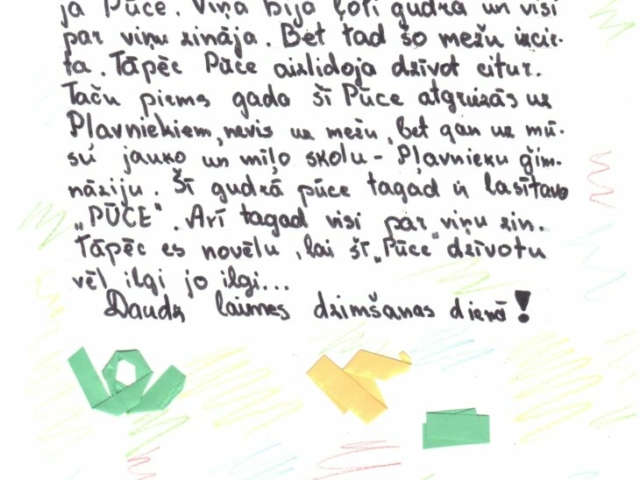 ja Pūce. Viņa bija ļoti gudra un visi
par viņu zināja. Bet tad šo mežu izcir-
ta. Tāpēc Pūce aizlidoja dzīvot citur.
Taču pirms gada šī Pūce atgriezās uz
Pļavniekiem, nevis uz mežu, bet gan uz mū-
su jauko un mīļo skolu - Pļavnieku ģim-
nāziju. Šī gudrā pūce tagad ir lasītava
„PŪCE". Arī tagad visi par viņu zin.
Tāpēc es novēlu, lai šī „Pūce" dzīvotu
vēl ilgi jo ilgi...
Daudz laimes dzimšanas dienā!